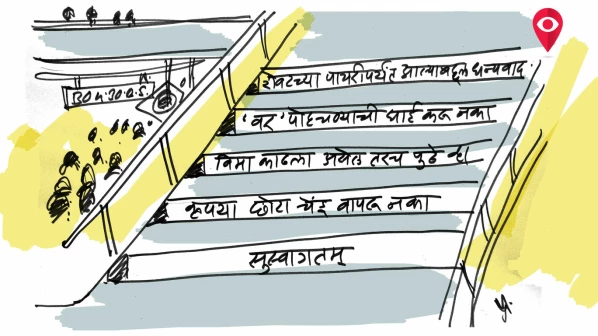 शेवटच्या पायरीपर्यंत आल्याबद्दल धन्यवाद.
'वर' पोहचण्याची घाई करू नका
विमा काढला असेल तरच पुढे व्हा
कृपया छोटा चेंडू वापरू नका
सुस्वागतम्